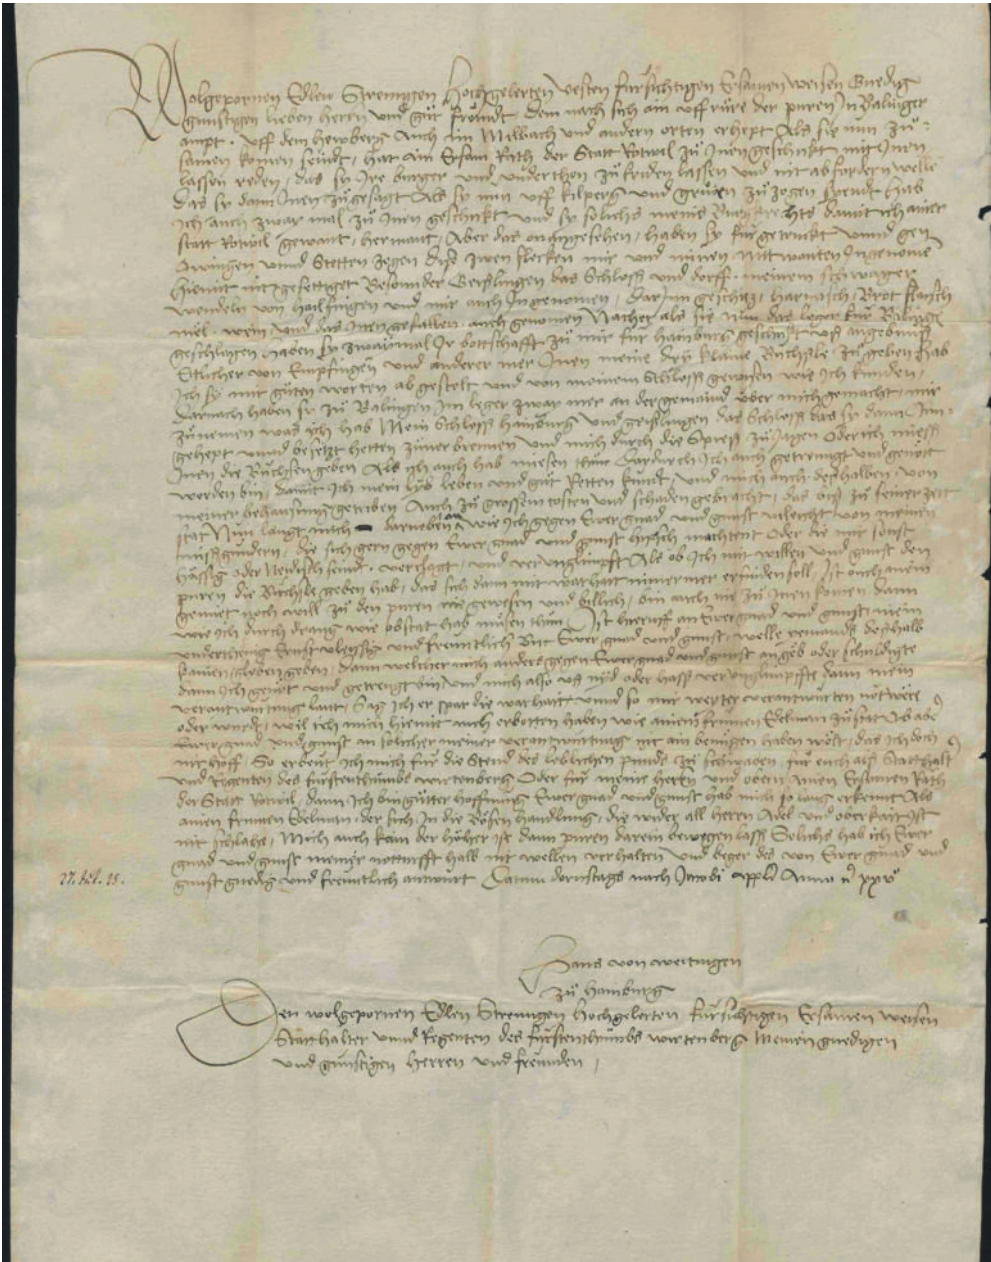 Wolgepornen Edlen Strenngen Hochgelerten Vesten fürsichtigen Ersamen weisen Gnedig
günstigen lieben herrn vnnd gůt fröundt Dem nach sich ain vffrůre der puren In Balinger
ampt. vff dem hewberg Auch Im Milbach vnd andern orten erhept Als sie nun zů=
samen komen seindt, hat ain Ersam Rath der Statt Rotwil zů Inen geschickt mit Inen
lassen reden, das sy Ire burger vnd vnderthon zů friden lassen vnd nit abfordern welle
das sy dann Inen zůgesagt Als sy nun vff kilperg vnd grůien zů zogen seyendt hab
Ich auch zwar mal zů Inen geschickt vnd sy solichs meins Burgkrechts damit ich ainer
statt Rotwil gewant, hermant, Aber das onangesehen, haben sy fürgetruckt vnnd gen
Owingen vnnd Stetten zogen dise zwen flecken mir vnd minen mitwanten Ingenome
hiemit nit gesettiget Besonnder Geislingen das Schloss vnd dorff. meinem schwager
wendeln von hailfingen vnd mir auch Ingenomen, Darinn geschütz, harnisch, Brot flaisch
mel. wein, vnd das Inen gefallen. auch genomen Nacher als sie nun das leger für Balingen
geschlagen haben sy zwaymal Ir bottschafft zů mir für hainburg geschickt vss angebung
Ettlicher von Empfingen vnd anderer mer Inen meine dry klaine Büchssle zů geben hab
Ich sy mit gůten worten abgestelt vnd von meinem Schloss gewisen wie Ich kunden,
Darnach haben sy zů Balingen Im leger zwar mer an der gemaind über mich gemacht, mir
zů nemen was ich hab Mein Schloss hainburg vnd geislingen das Schloss das sy dann Inn=
gehept vnnd besetzt hetten zůuerbrennen vnd mich durch die Spiess zů Jagen Oder ich miess
Inen die Büchsen geben Als Ich auch hab miesen thůn Dardurch Ich auch getrengt vnd genött
worden bin, damit Ich mein lyb leben vnd gůt Retten kundt, vnd mich auch deshalben, von
meiner behausung getriben Auch zů grossem costen vnd schaden gebracht, das biss zů seiner zeit
stat Nun langt mich darneben an wie Ich gegen Ewer gnad vnd gunst villeicht von meinen
missgündern, die sich gern gegen Ewer gnad vnd gunst hipsch machtent Oder die mir sonst
hässig oder Neidisch seindt. versagt, vnd verunglimpft Als ob Ich mit willen vnd gunst den
puren die Büchsle geben hab, das sich dann mit warhait nimermer erfinden soll, Ist ouch mein
gemiet noch will zů den puren nie gewesen vnd billich, bin auch nie zů Inen komen dann
wie Ich durch drang wie obstat hab miesen thůn Ist hieruff an Ewer gnad vnd gunst, mein
vnderthenig Ernst vleyssig vnd freuntlich Bit Ewer gnad vnd gunst, welle nemands deshalb
kainen glouben geben, dann welcher mich anders gegen Ewer gnad vnd gunst angeb oder schuldigte
dann Ich genöt vnd getrengt bin vnd mich also vss nyd oder hass verunglimpffte dann mein
verantwurtung laut, Sag Ich er spar die warhait vnnd so mir wyter verantwürten nott were
oder wurd, wil ich mich hiemit auch erbotten haben wie ainem frummen Edelman zůstat Ob aber
Ewer gnad vnd gunst an solicher meiner verantwurtung nit ain beniegen haben wölt, das Ich doch
nit hoff. So erbeut Ich mich für die Stend des loblichen punds zů schwaben für euch als Statthalt
vnd Regenten des fürstenthumbs wirtenberg Oder für meine herrn vnd obern ainen Ersamen Rath
der Statt Rotwil, dann Ich bin gůtter hoffnung Ewer gnad vnd gunst hab mich so lang erkennt Als
ainen frumen Edelman, der sich, In die Bösen handlung, die wider all herrn Adel vnd oberkait ist
nit schlahe, Mich auch kain der höher ist dann puren darein bewegen lass Solichs hab ich Ewer
gnad vnd gunst meiner notturfft halb nit wellen verhalten vnd beger des von Ewer gnad vnd
gunst gnedig vnd freuntlich antwurt Datum dornstags nach Jacobi appli Anno xxv
27. Jul. 25.
Hans von weitingen
zů hainburg
Den wolgepornen Edlen Strenngen hochgelerten fürsichtigen Ersamen weisen
Statthalter vnnd Regenten des fürstenthumbs wirtenberg Meinen gnedigen
vnd günstigen herren vnd freunden,